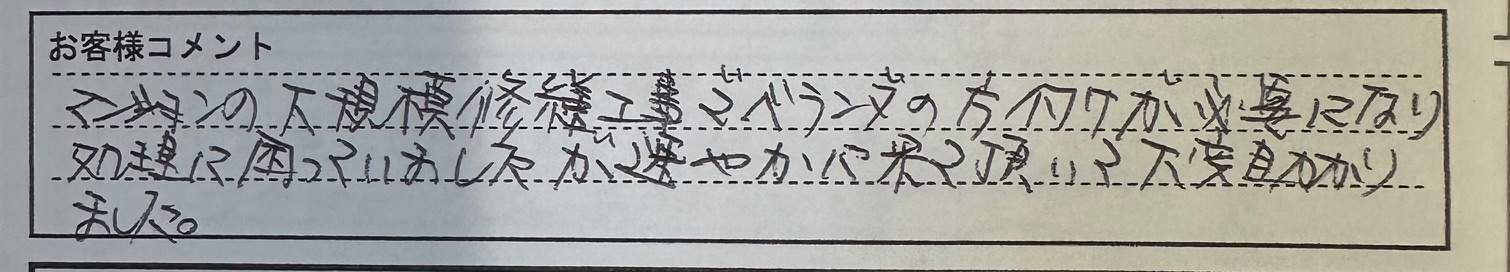 お客様コメント
マンションの大規模修繕工事でベランダの片付けが必要になり
処理に困っていましたが速やかに来て頂いて大変助かり
ました。